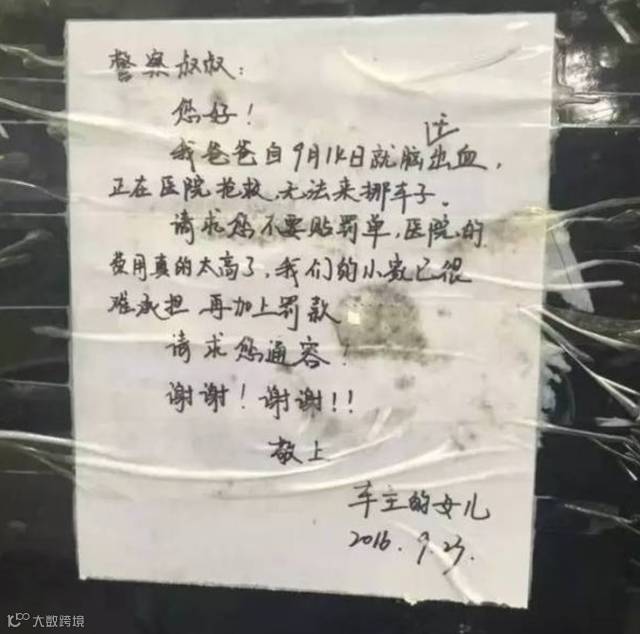 警察叔叔:
您好!
我爸爸自9月14日就脑出血,
正在医院抢救,无法来挪车子。
请求您不要贴罚单,医院的
费用真的太高了,我们的小数已很
难承担 再加上罚款
请求您通容!
谢谢!谢谢!!
敬上
车主的女儿
2016.9.23.
大数跨境